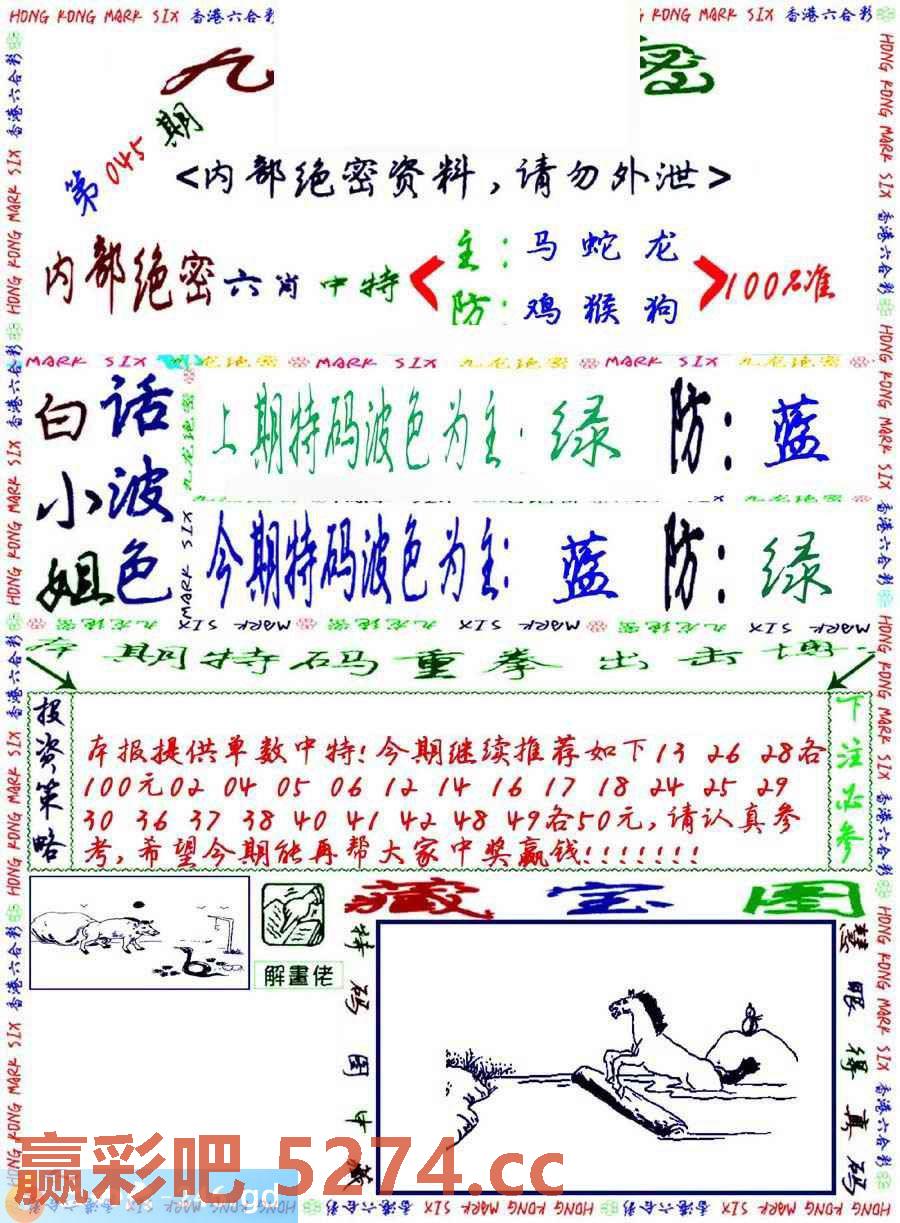 HONG KONG MARK SIX 香港六合彩
KONG MARK SIX 香港六合彩
九 密
第045期
<内部绝密资料,请勿外泄>
内部绝密六肖中特
主:马蛇龙
防:鸡猴狗
100%准
MARK SIX 九龙绝密 MARK SIX 九龙绝密 MARK SIX 九龙绝密
白话
小波
姐色
上期特码波色为主:绿 防:蓝
今期特码波色为主:蓝 防:绿
本期特码重拳出击博
投资策略
本报提供单数中特!今期继续推荐如下13 26 28各
100元02 04 05 06 12 14 16 17 18 24 25 29
30 36 37 38 40 41 42 48 49各50元,请认真参
考,希望今期能再帮大家中奖赢钱!!!!!!!
下注必参
藏宝图
解畫佬
特码图中
慧眼得真码
赢彩吧 5274.cc